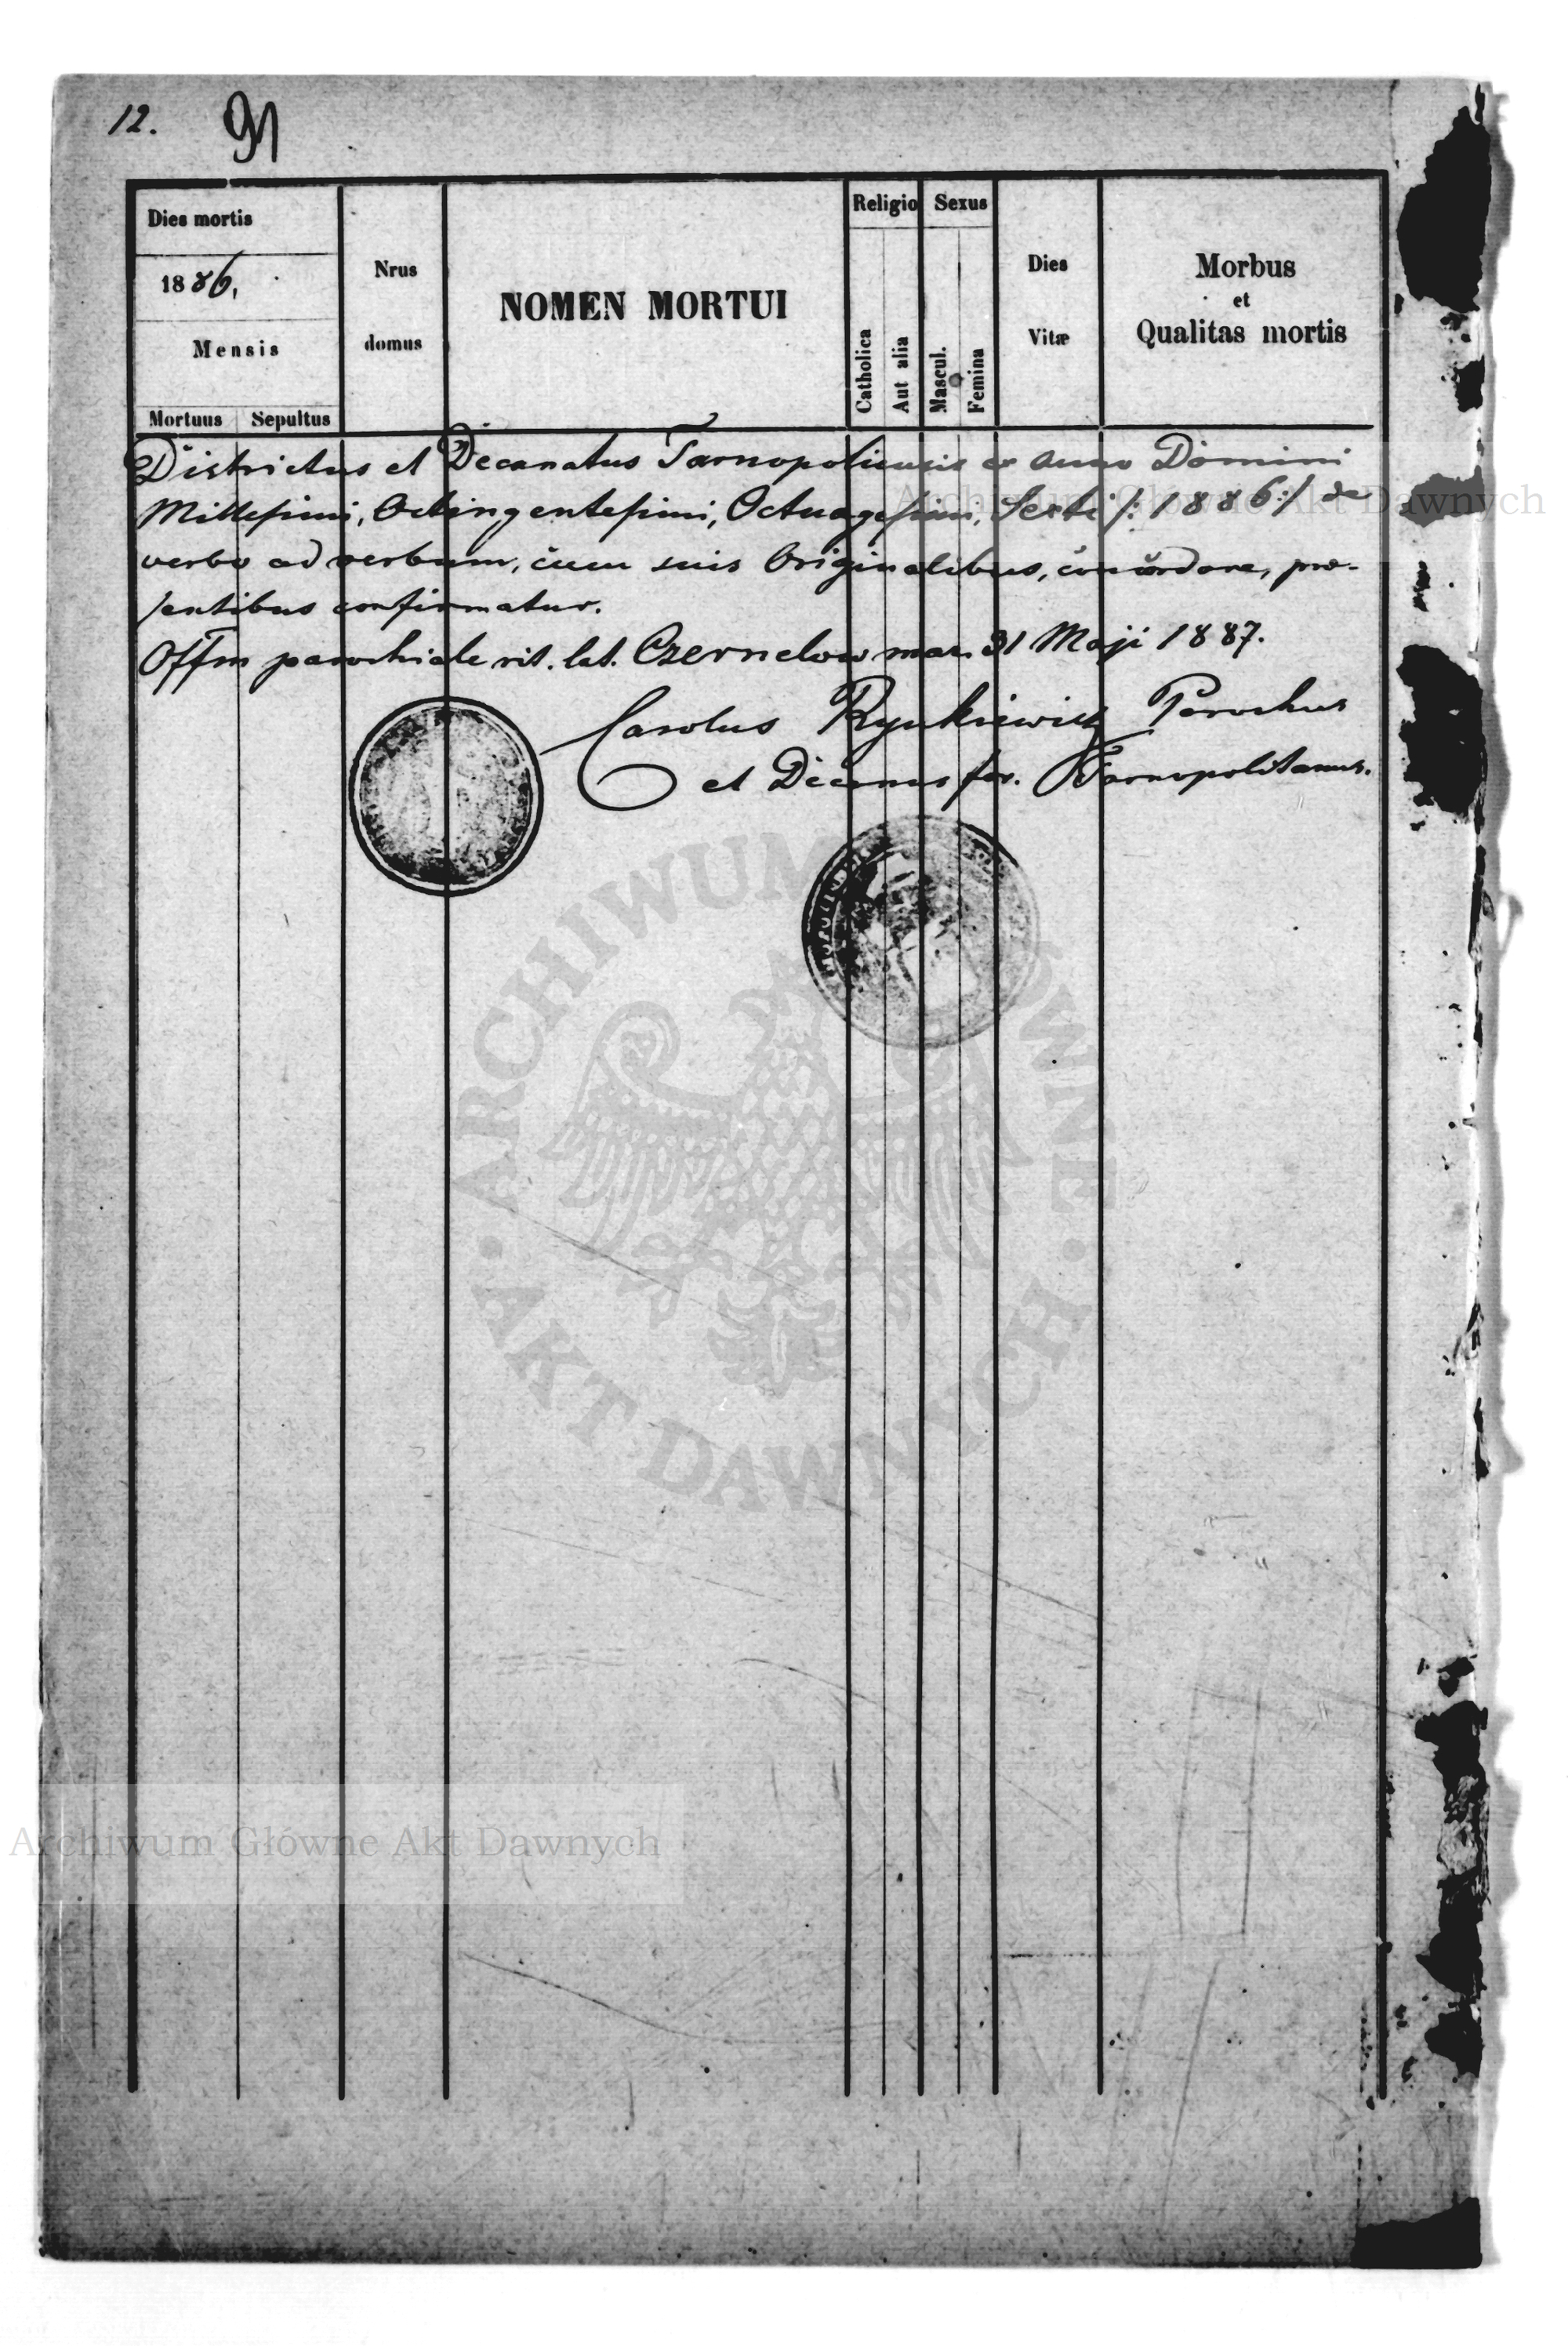 12. 91
Dies mortis
1886,
Mensis
Mortuus Sepultus
Nrus
domus
NOMEN MORTUI
Religio
Catholica
Aut alia
Sexus
Mascul.
Femina
Dies
Vitæ
Morbus
et
Qualitas mortis
Districtus et Decanatus Tarnopoliensis ex anno Domini
Millesimi, Octingentesimi, Octuagesimi, Sexti /: 1886 :/ de
verbo ad verbum, cum suis Originalibus, concordare, præ-
sentibus confirmatur.
Offm parochiale rit. lat. Czernelow maz. 31 Maji 1887.
Carolus Parochus
et Decanus for. Tarnopolitanus.
ARCHIWUM GŁÓWNE
AKT DAWNYCH
Archiwum Główne Akt Dawnych
Archiwum Główne Akt Dawnych